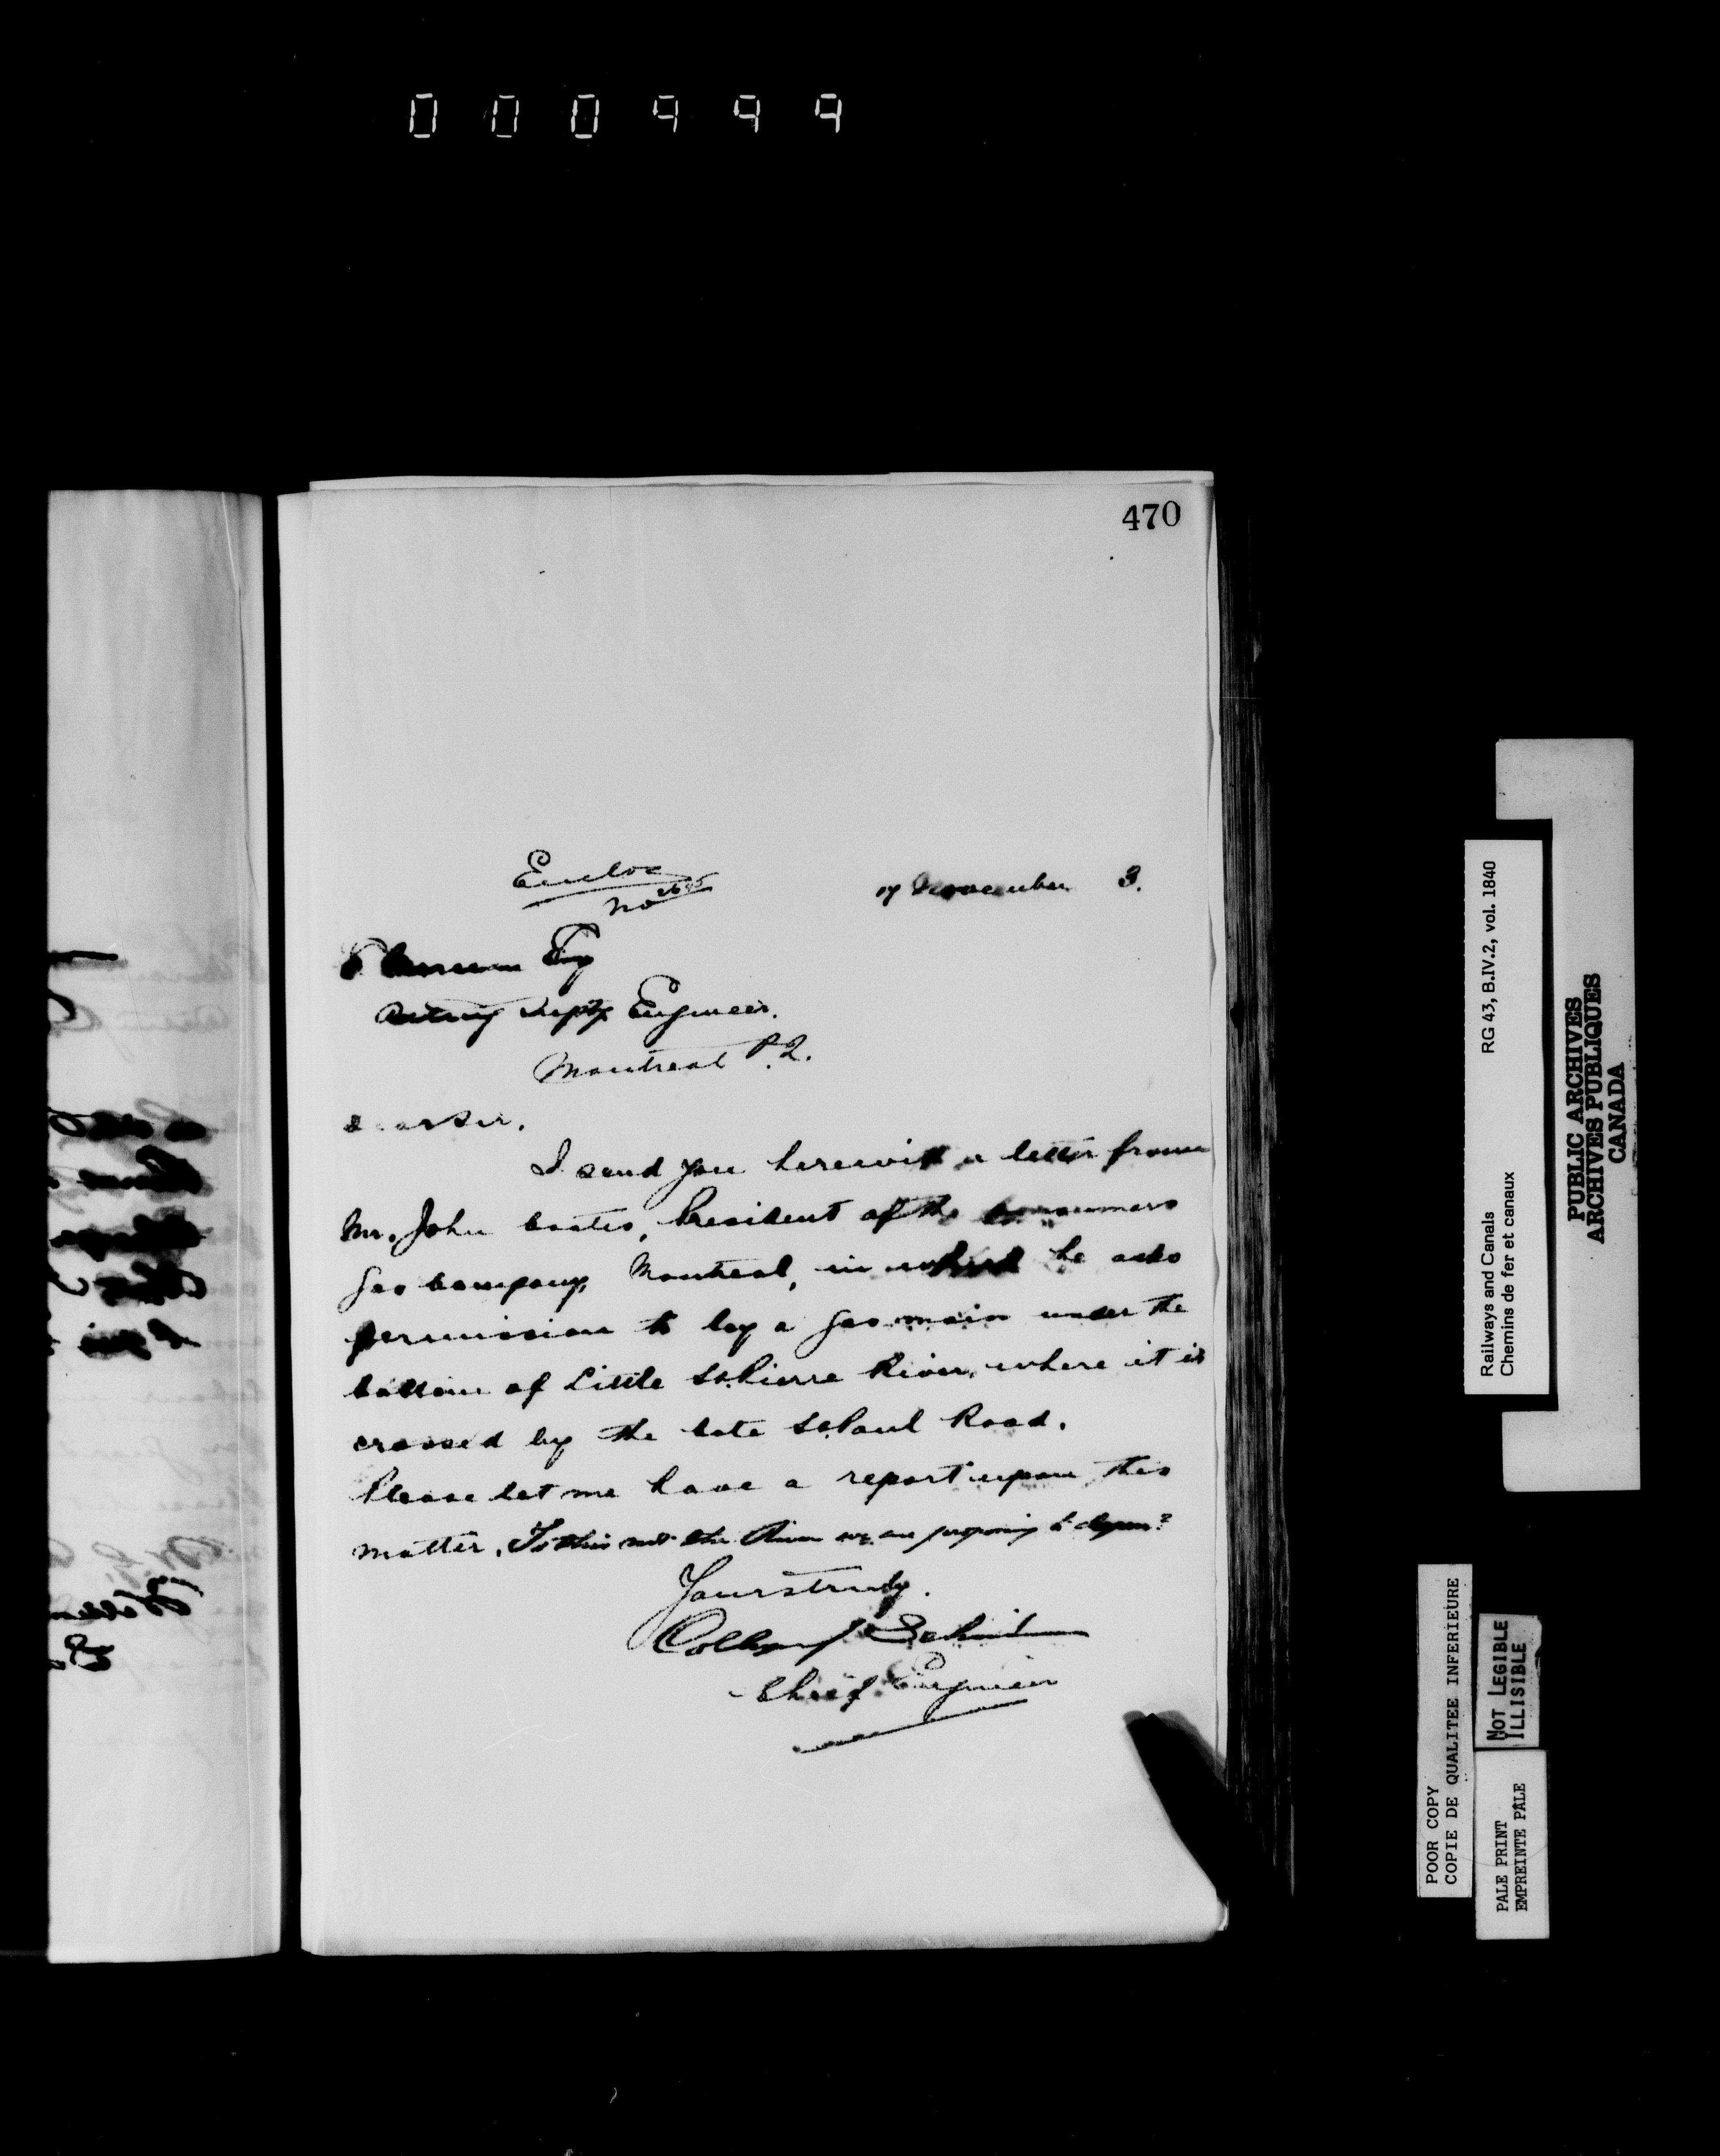 000999
470
Encloc
No
17 November 3.
Esq
Acting Supts Engineer.
Montreal P.Q.
Dear Sir,
I send you herewith a letter from
Mr. John Coates, President of the Consumers
Gas Company, Montreal, in which he asks
permission to lay a gas main under the
bottom of Little St. Pierre River, where it is
crossed by the Cote St Paul Road.
Please let me have a report upon this
matter. Is this not the River we are proposing to
Yours truly.
Collingwood Schreiber
Chief Engineer
Railways and Canals RG 43, B.IV.2, vol. 1840
Chemins de fer et canaux
PUBLIC ARCHIVES
ARCHIVES PUBLIQUES
CANADA
POOR COPY
COPIE DE QUALITEE INFERIEURE
NOT LEGIBLE
ILLISIBLE
PALE PRINT
EMPREINTE PALE